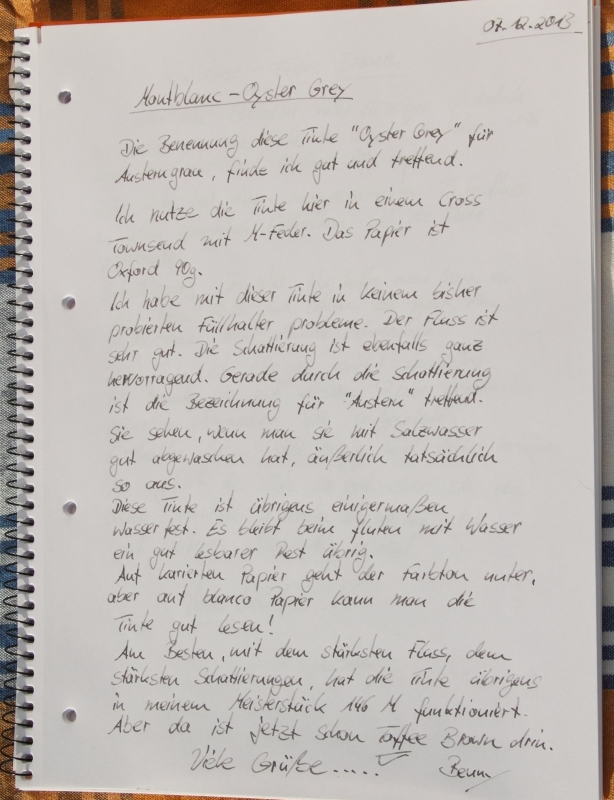 07.12.2013
Montblanc - Oyster Grey
Die Benennung diese Tinte "Oyster Grey" für
Austerngrau, finde ich gut und treffend.
Ich nutze die Tinte hier in einem Cross
Townsend mit M-Feder. Das Papier ist
Oxford 90g.
Ich habe mit dieser Tinte in keinem bisher
probierten Füllhalter, probleme. Der Fluss ist
sehr gut. Die Schattierung ist ebenfalls ganz
hervorragend. Gerade durch die Schattierung
ist die Bezeichnung für "Austern" treffend.
Sie sehen, wenn man sie mit Salzwasser
gut abgewaschen hat, äußerlich tatsächlich
so aus.
Diese Tinte ist übrigens einigermaßen
Wasserfest. Es bleibt beim fluten mit Wasser
ein gut lesbarer Rest übrig.
Auf karierten Papier geht der Farbton unter,
aber auf blanco Papier kann man die
Tinte gut lesen!
Am Besten, mit dem stärksten Fluss, dem
stärksten Schattierungen, hat die Tinte übrigens
in meinem Meisterstück 146 M funktioniert.
Aber da ist jetzt schon Toffee Brown drin.
Viele Grüße..... Benny